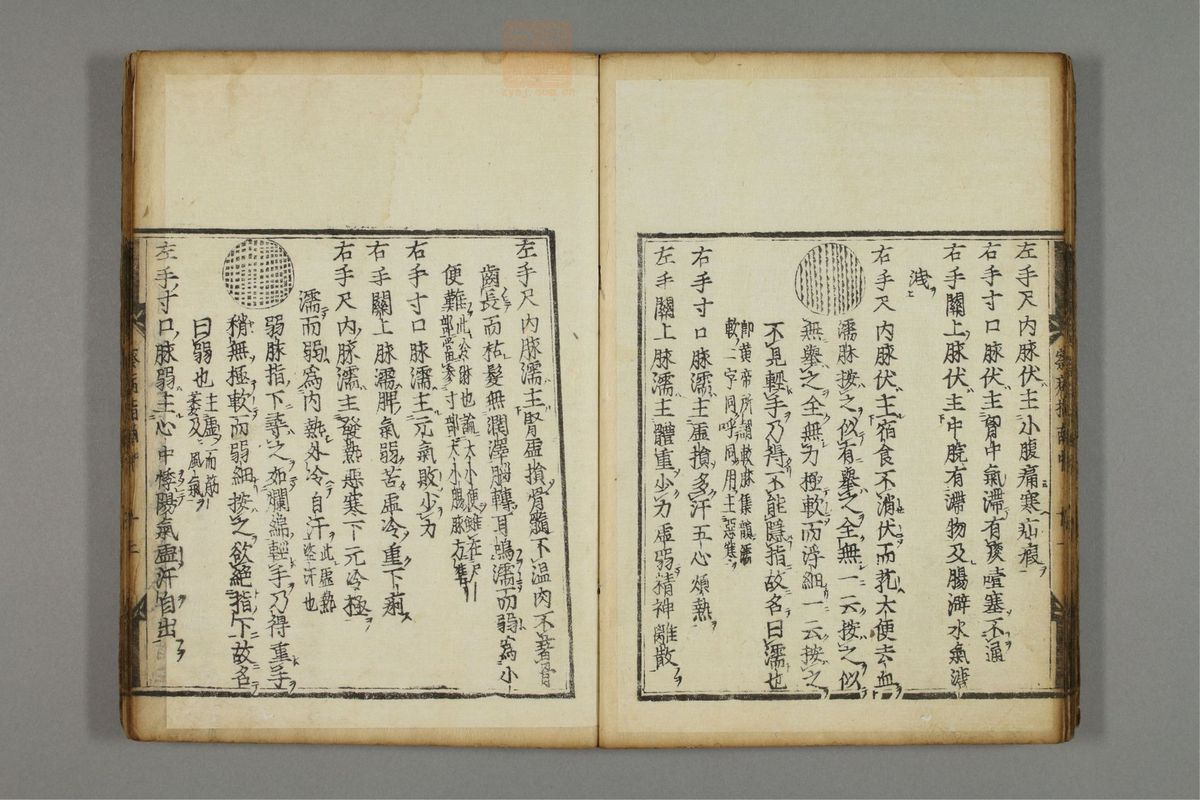 左手尺内脉伏主小腹痛寒疝瘕
右手寸口脉伏主胷中氣滯有痰噎塞不通
右手關上脉伏主中脘有滯物及腸澼水氣溏
洩
右手尺内脉伏主宿食不消伏而芤大便去血
濡脉按之似有舉之全無一云按之似
無舉之全無力極軟而浮細一云按之
不見輕手乃得不能隱指故名曰濡也
即黄帝所謂軟脉集韻濡
軟二字同呼同用主惡寒
右手寸口脉濡主虛損多汗五心煩熱
左手關上脉濡主體重少力虛弱精神離散
左手尺内脉濡主腎虛損骨髓不温肉不著骨
齒長而枯髮無潤澤腦轉耳鳴濡而弱為小
便難
右手寸口脉濡主元氣敗少力
右手關上脉濡脾氣弱苦虛冷重下痢
右手尺内脉濡主發熱惡寒下元冷極
濡而弱為内熱外冷自汗
此虛熱
盗汗也
弱脉指下尋之如爛綿輕手乃得重手
稍無極軟而弱細按之欲絶指下故名
曰弱也
主虛而筋
萎及風氣
左手寸口脉弱主心中悸陽氣虛汗自出